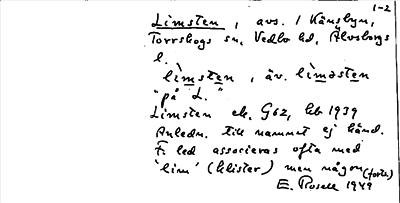 1-2
Limsten, avs. / Känsbyn,
Torrskogs sn, Vedbo hd, Älvsborgs
l.
limsten, äv. limosten
"på L."
Limsten ek. G62, hb 1939
Anledn. till namnet ej känd.
F. led associeras ofta med
'lim' (klister) men någon (forts.)
E. Rosell 1949